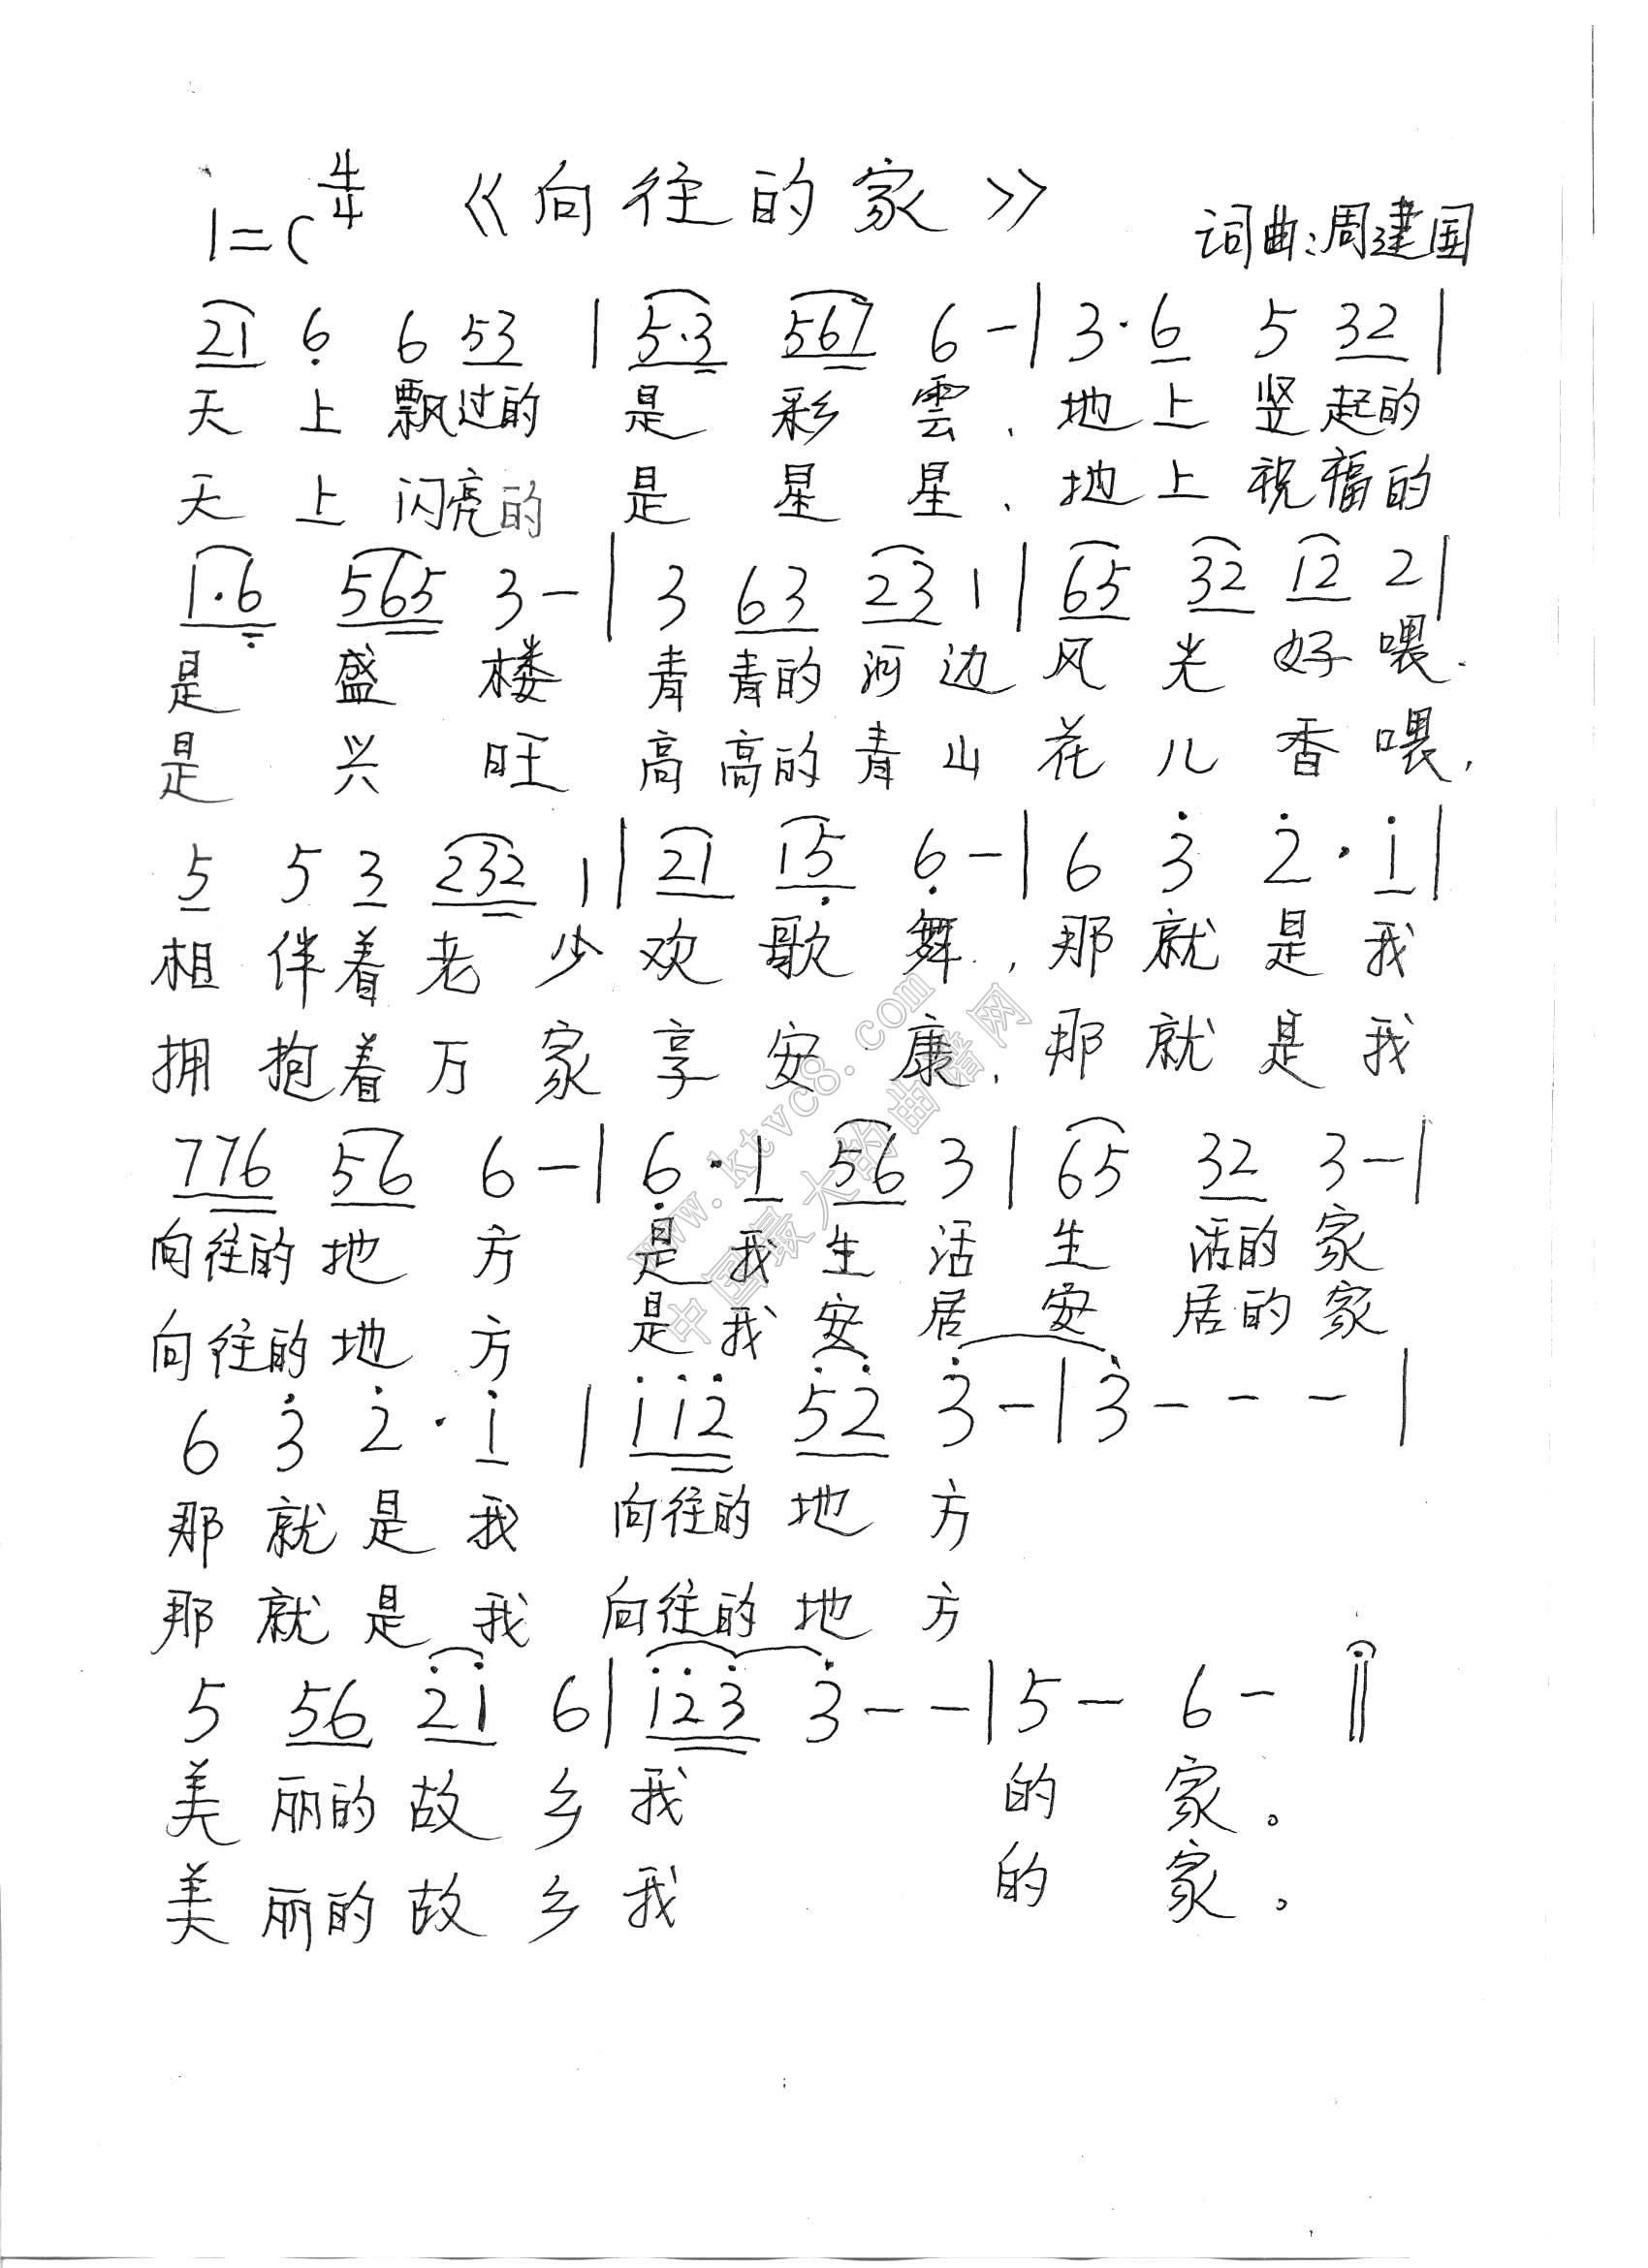 1=C 4/4 《向往的家》
词曲:周建国
21 6 6 53 | 5·3 567 6 - | 3·6 5 32 |
天上飘过的 是彩雲、地上竖起的
天上闪亮的 是星星、地上祝福的
1·6 565 3 - | 3 63 23 1 | 65 32 12 2 |
是盛楼 青青的河边风光好喂.
是兴旺 高高的青山花儿香喂,
5 5 3 232 1 | 21 15 6 - | 6 3 2·1 |
相伴着老少欢歌舞,那就是我
拥抱着万家享安康,那就是我
776 56 6 - | 6·1 56 3 | 65 32 3 - |
向往的地方 是我生活生活的家
向往的地方 是我安居安居的家
6 3 2·1 | 112 52 3 - | 3 - - - |
那就是我 向往的地方
那就是我 向往的地方
5 56 21 6 | 123 3 - - | 5 - 6 - ‖
美丽的故乡我 的家。
美丽的故乡我 的家。
www.ktvc8.com
中国最大的曲谱网